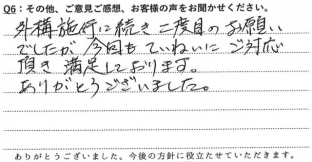 Q6：その他、ご意見ご感想、お客様の声をお聞かせください。
外構施行に続き二度目のお願い
でしたが今回もていねいにご対応
頂き満足しております。
ありがとうございました。
ありがとうございました。今後の方針に役立たせていただきます。